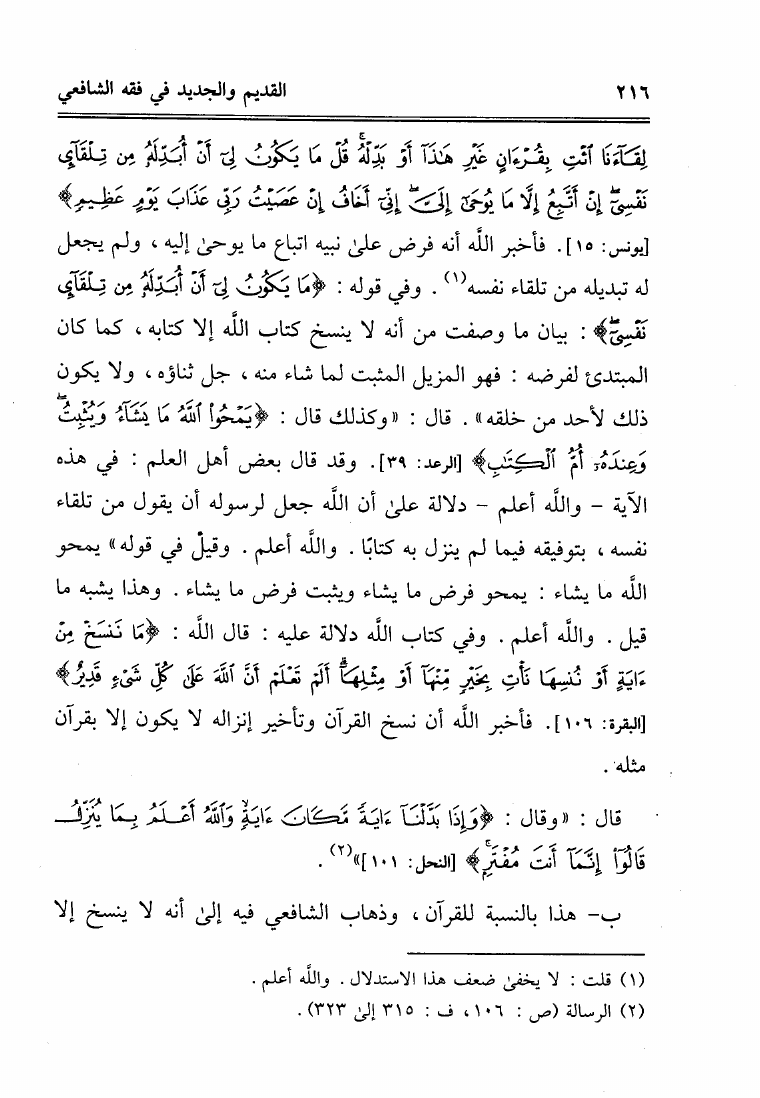 ٢١٦ القديم والجديد في فقه الشافعي
لِقَآءَنَا ٱئۡتِ بِقُرۡءَانٍ غَيۡرِ هَٰذَآ أَوۡ بَدِّلۡهُۚ قُلۡ مَا يَكُونُ لِيٓ أَنۡ أُبَدِّلَهُۥ مِن تِلۡقَآيِٕ
نَفۡسِيٓۖ إِنۡ أَتَّبِعُ إِلَّا مَا يُوحَىٰٓ إِلَيَّۖ إِنِّيٓ أَخَافُ إِنۡ عَصَيۡتُ رَبِّي عَذَابَ يَوۡمٍ عَظِيمٖ﴾
[يونس: ١٥]. فأخبر اللَّه أنه فرض علىٰ نبيه اتباع ما يوحىٰ إليه ، ولم يجعل
له تبديله من تلقاء نفسه(١) . وفي قوله : ﴿مَا يَكُونُ لِيٓ أَنۡ أُبَدِّلَهُۥ مِن تِلۡقَآيِٕ
نَفۡسِيٓۖ﴾ : بيان ما وصفت من أنه لا ينسخ كتاب اللَّه إلا كتابه ، كما كان
المبتدئ لفرضه : فهو المزيل المثبت لما شاء منه ، جل ثناؤه ، ولا يكون
ذلك لأحد من خلقه» . قال : «وكذلك قال : ﴿يَمۡحُواْ ٱللَّهُ مَا يَشَآءُ وَيُثۡبِتُۖ
وَعِندَهُۥٓ أُمُّ ٱلۡكِتَٰبِ﴾ [الرعد: ٣٩]. وقد قال بعض أهل العلم : في هذه
الآية – واللَّه أعلم – دلالة علىٰ أن اللَّه جعل لرسوله أن يقول من تلقاء
نفسه ، بتوفيقه فيما لم ينزل به كتابًا . واللَّه أعلم . وقيل في قوله» يمحو
اللَّه ما يشاء : يمحو فرض ما يشاء ويثبت فرض ما يشاء . وهذا يشبه ما
قيل . واللَّه أعلم . وفي كتاب اللَّه دلالة عليه : قال اللَّه : ﴿مَا نَنسَخۡ مِنۡ
ءَايَةٍ أَوۡ نُنسِهَا نَأۡتِ بِخَيۡرٖ مِّنۡهَآ أَوۡ مِثۡلِهَآۗ أَلَمۡ تَعۡلَمۡ أَنَّ ٱللَّهَ عَلَىٰ كُلِّ شَيۡءٖ قَدِيرٌ﴾
[البقرة: ١٠٦]. فأخبر اللَّه أن نسخ القرآن وتأخير إنزاله لا يكون إلا بقرآن
مثله .
قال : «وقال : ﴿وَإِذَا بَدَّلۡنَآ ءَايَةٗ مَّكَانَ ءَايَةٖۙ وَٱللَّهُ أَعۡلَمُ بِمَا يُنَزِّلُ
قَالُوٓاْ إِنَّمَآ أَنتَ مُفۡتَرِۭۚ﴾ [النحل: ١٠١]»(٢) .
ب– هذا بالنسبة للقرآن ، وذهاب الشافعي فيه إلىٰ أنه لا ينسخ إلا
(١) قلت : لا يخفىٰ ضعف هذا الاستدلال . واللَّه أعلم .
(٢) الرسالة (ص : ١٠٦، ف : ٣١٥ إلىٰ ٣٢٣).